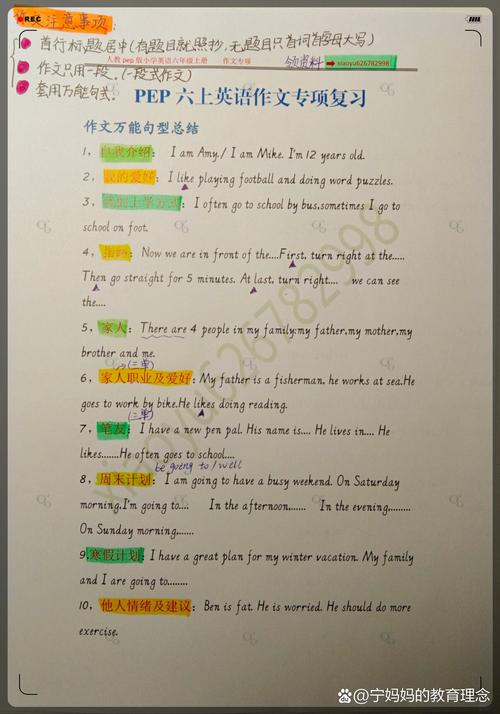 作文注意事项:
REC
① 首行标题居中(有题目就照抄,无题目只首词首字母大写)
人教pep版小学英语六年级上册 作文专项 领资料 xiaoyu626782998
② 作文只用一段.(一段式作文)
③ 套用万能句式.
PEP 六上英语作文专项复习
作文万能句型总结
1, 自我介绍: I am Amy./ I am Mike. I'm 12 years old.
2, 我的爱好: I like playing football and doing word puzzles.
3, 我的上学方式: I often go to school by bus,sometimes I go to
school on foot.
4, 指路: Now we are in front of the....First, turn right at the.....
Then go straight for 5 minutes. At last, turn right.... we can see
the....
5, 家人: There are 4 people in my family:my father,my mother,my
brother and me.
(三单)
6, 家人职业及爱好: My father is a fisherman, he works at sea.He
goes to work by bike.He likes doing reading.
(三单)
7, 笔友: I have a new pen pal. His name is.... He lives in.... He
likes......He often goes to school....
be going to / will
8, 周末计划: I am going to have a busy weekend. On Saturday
morning,I'm going to.... In the afternoon....... In the evening........
On Sunday morning,......
9,寒假计划: I have a great plan for my winter vacation. My family
and I are going to........
10, 他人情绪及建议: Ben is fat. He is worried. He should do more
exercise.
xiaoyu626782998
@宁妈妈的教育理念